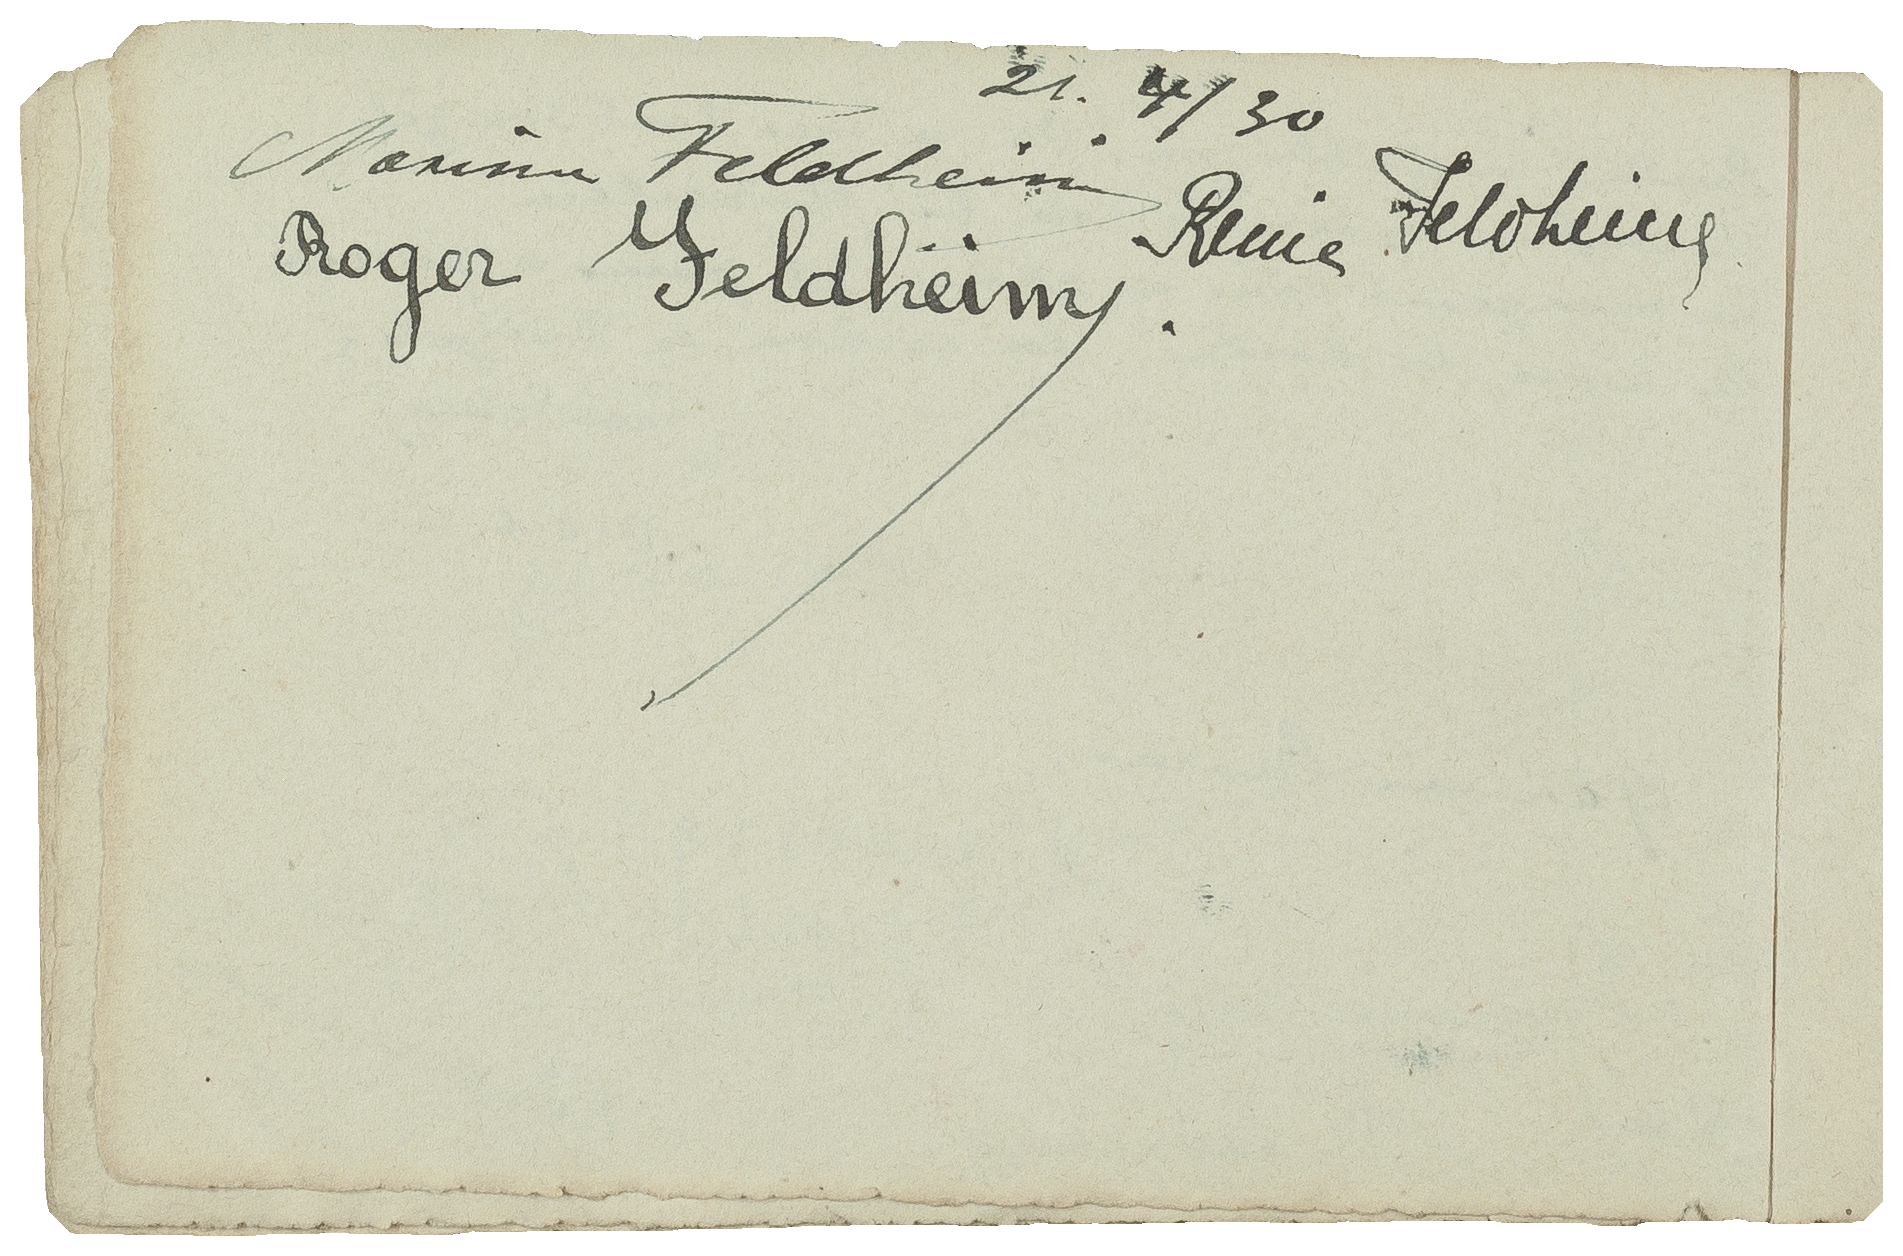 21. 4/30
Feldheim Renée Feldheim
Roger Feldheim.